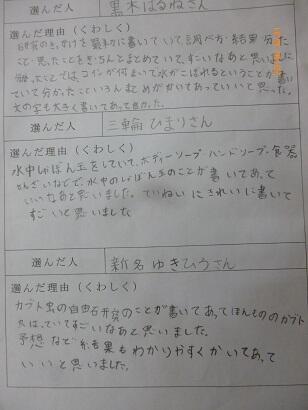 選んだ人 黒木はるねさん
選んだ理由（くわしく）
研究のきっかけを最初に書いていて、調べ方・結果・分かった
こと・思ったことをきちんとまとめていて、すごいなあと思いました。
ことでは、コインが何まいで水がこぼれるということが書い
ていて分かったこといろん
文の字も大きく書いてあって良かった。
選んだ人 三輪ひまりさん
選んだ理由（くわしく）
水中しゃぼん玉をしていて、ボディーソープ・ハンドソープ・食器
せんざいなどで、水中のしゃぼん玉のことが書いてあって
いいなあと思いました。ていねいにきれいに書いて
すごいと思いました。
選んだ人 新名ゆきひろさん
選んだ理由（くわしく）
カブト虫の自由研究のことが書いてあってほんもののカブト
はっていてすごいなあと思いました。
予想など結果もわかりやすくかいてあって
いいと思いました。